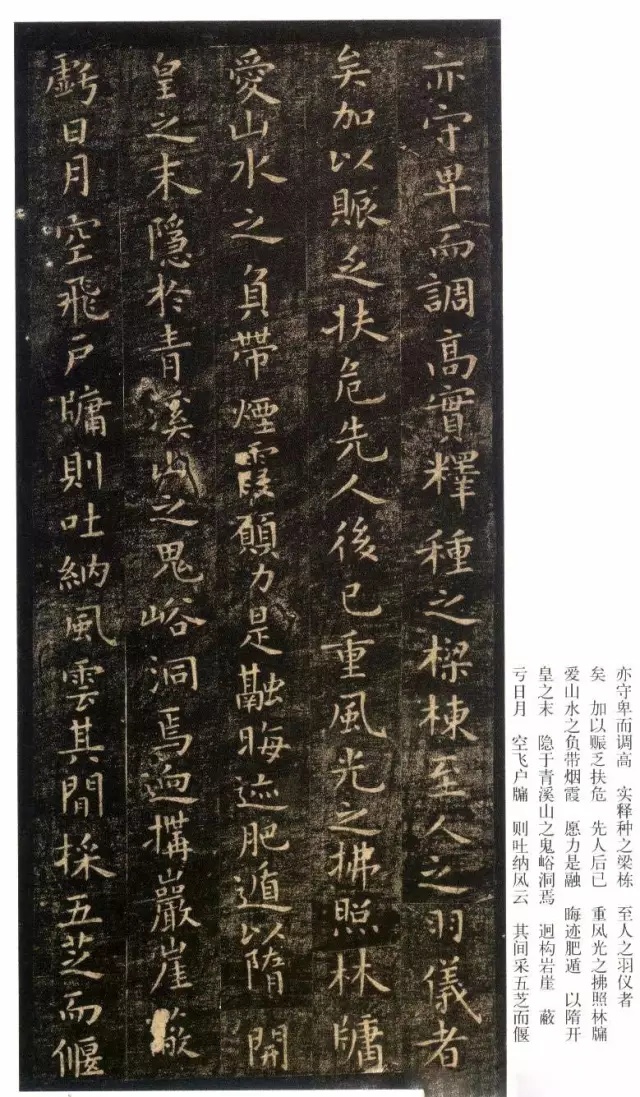 亦守卑而調高實釋種之樑棟至人之羽儀者
矣加以賑乏扶危先人後已重風光之拂照林牗
愛山水之負帶煙霞願力是融晦迹肥遁以隋開
皇之末隱於青溪山之鬼峪洞焉迥構巖崖蔽
虧日月空飛戶牗則吐納風雲其間採五芝而偃
亦守卑而调高 实释种之梁栋 至人之羽仪者
矣 加以赈乏扶危 先人后己 重风光之拂照林牖
爱山水之负带烟霞 愿力是融 晦迹肥遁 以隋开
皇之末 隐于青溪山之鬼峪洞焉 迥构岩崖 蔽
亏日月 空飞户牖 则吐纳风云 其间采五芝而偃